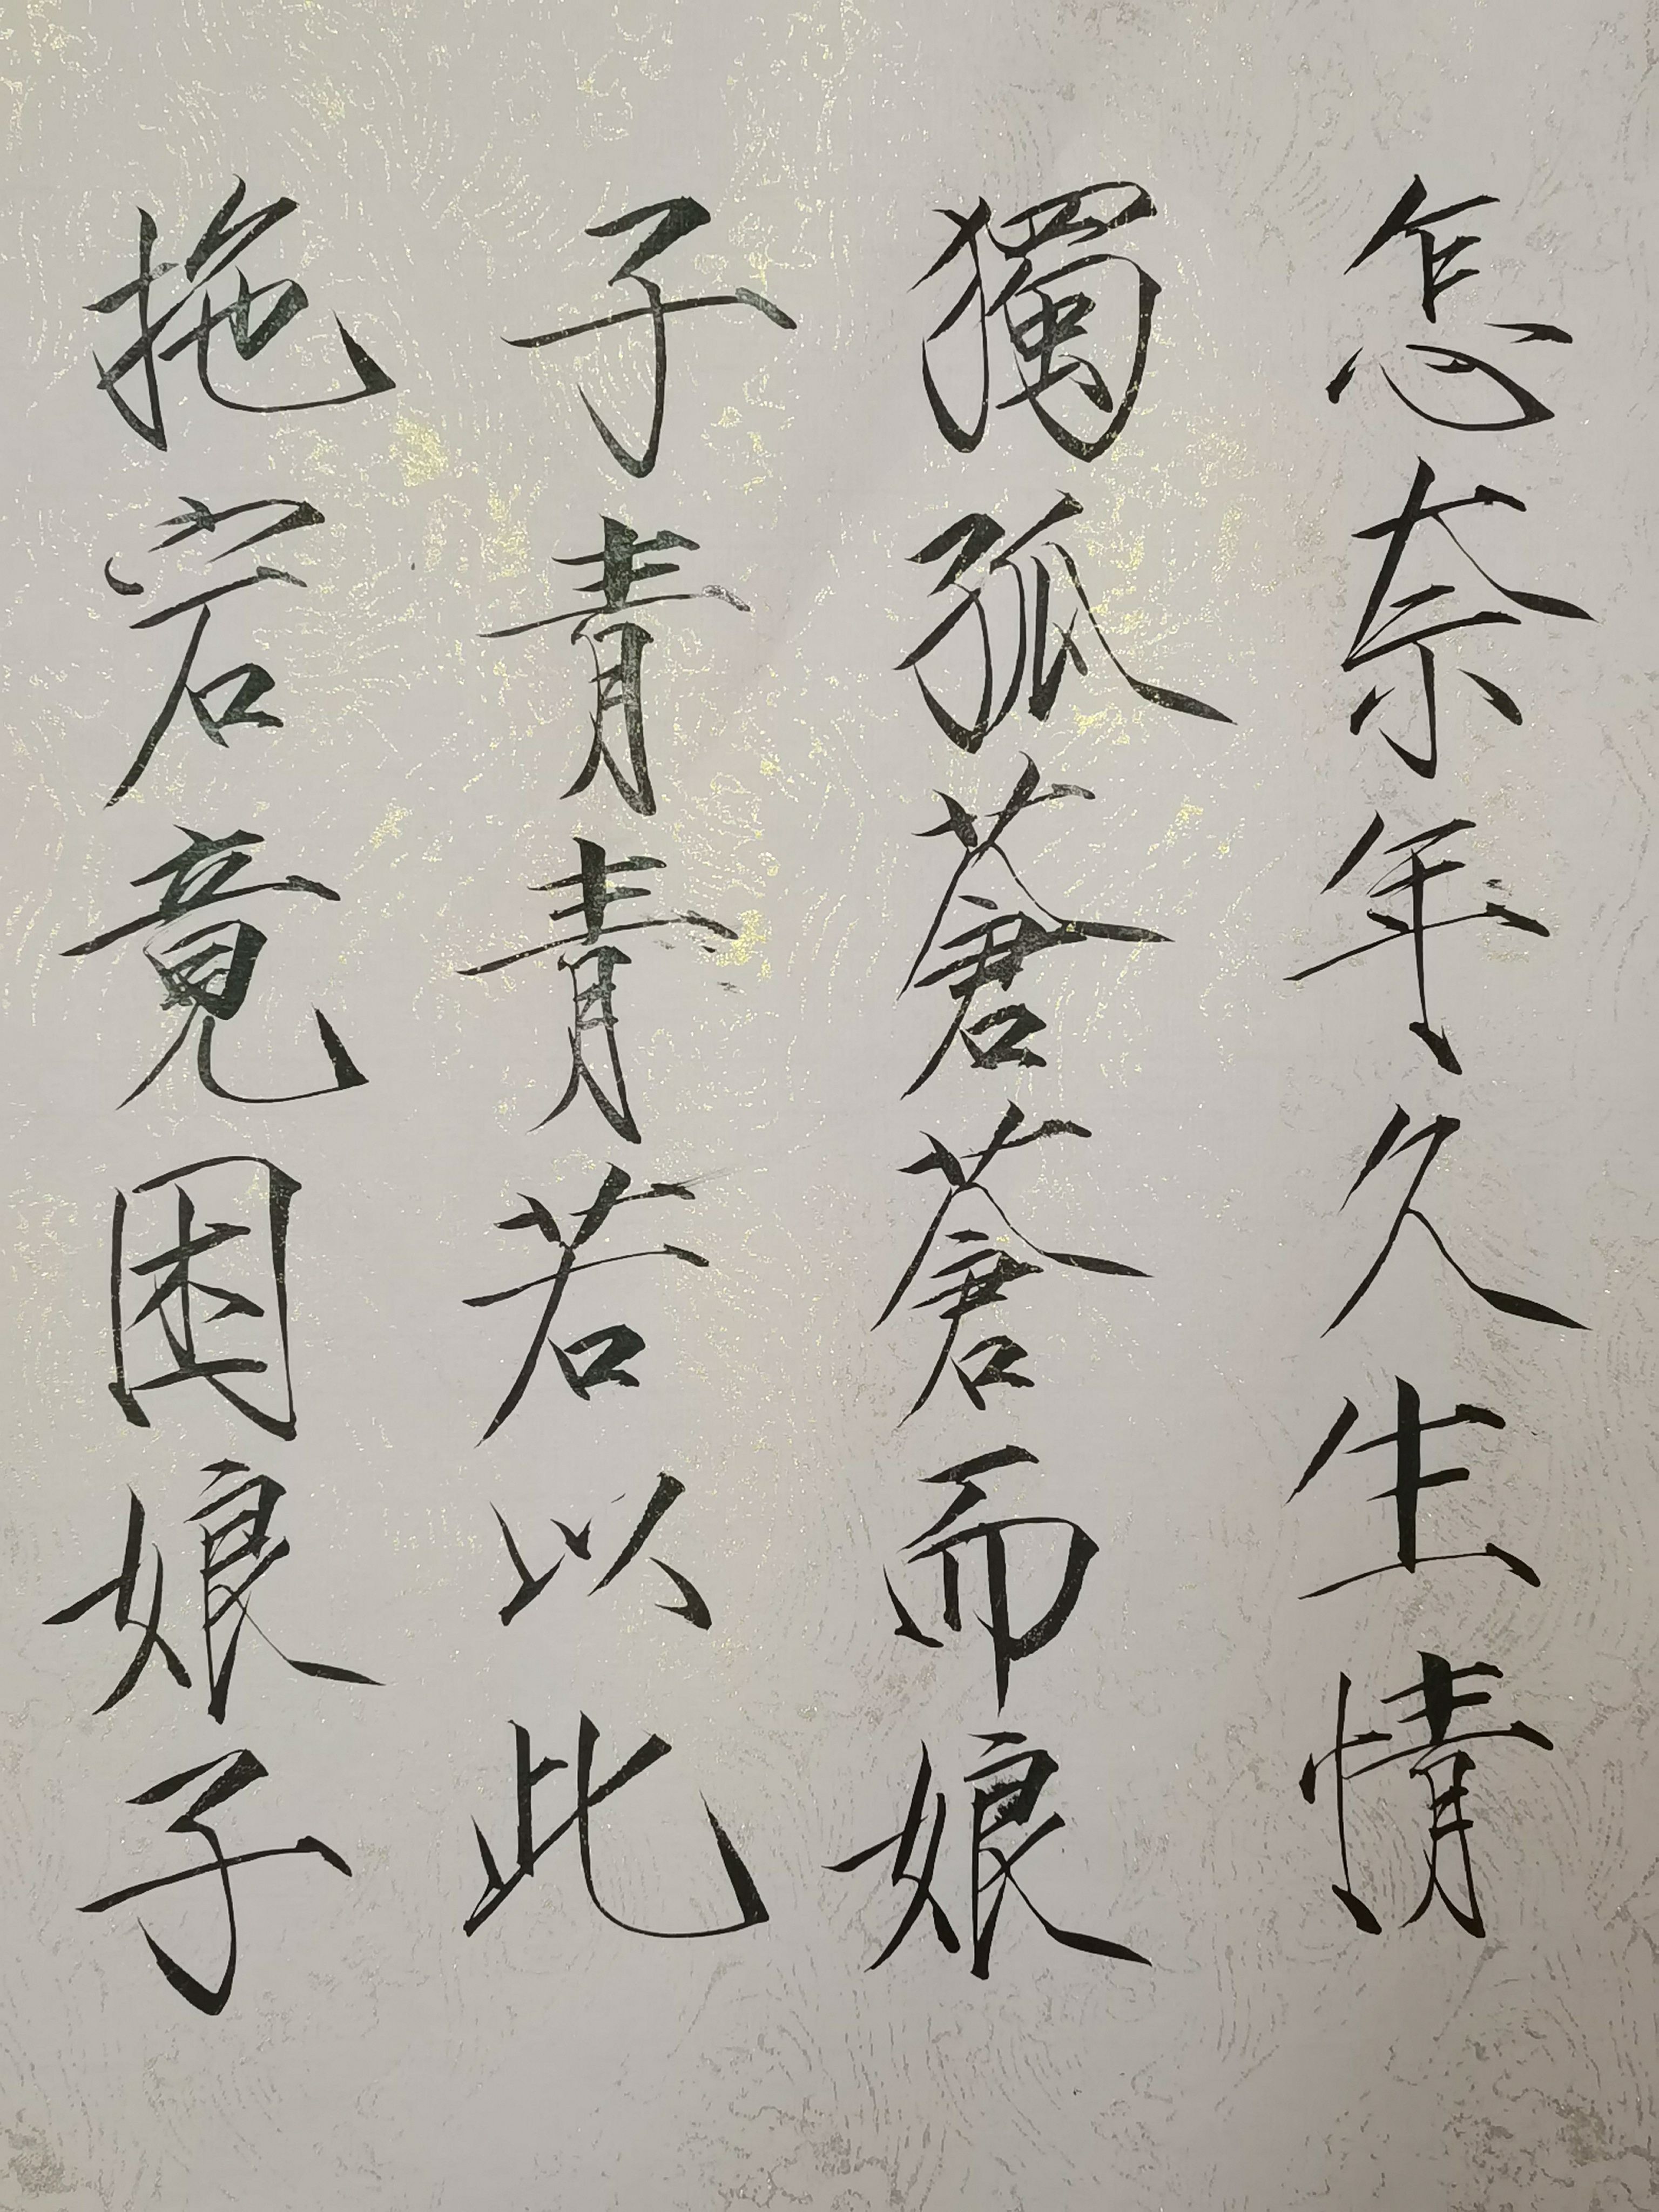 怎奈年久生情
獨孤蒼蒼而娘
子青青若以此
拖宕竟困娘子